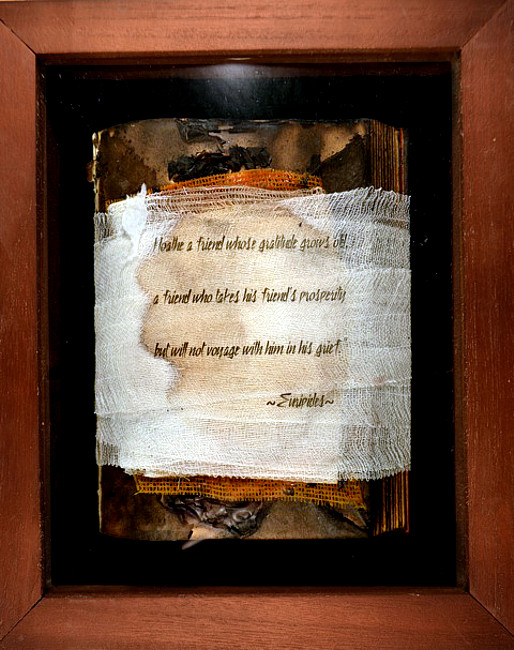 I loathe a friend whose gratitude grows old
a friend who takes his friend's prosperity
but will not voyage with him in his grief.
~Euripides~